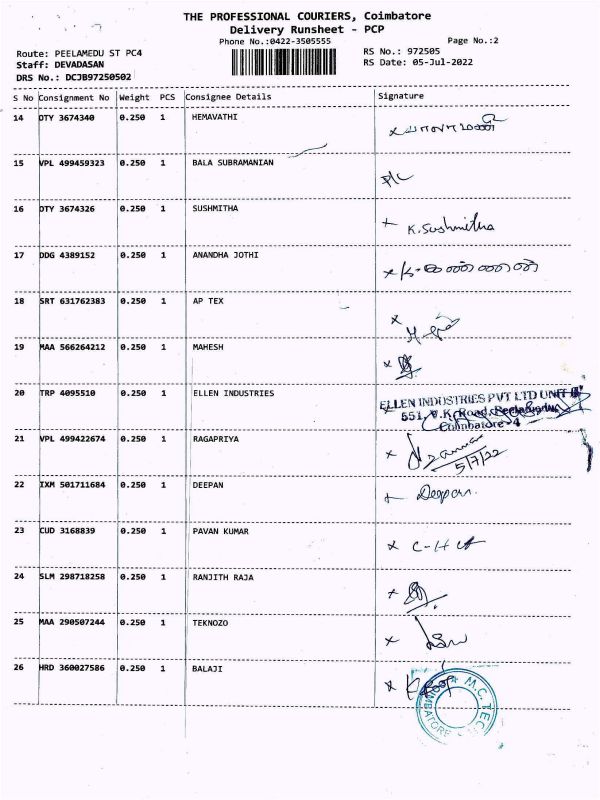 THE PROFESSIONAL COURIERS, Coimbatore
Delivery Runsheet - PCP
Phone No.:0422-3505555
Page No.:2
Route: PEELAMEDU ST PC4
RS No.: 972505
Staff: DEVADASAN
RS Date: 05-Jul-2022
DRS No.: DCJB97250502
S No Consignment No Weight PCS Consignee Details Signature
14 DTY 3674340 0.250 1 HEMAVATHI
15 VPL 499459323 0.250 1 BALA SUBRAMANIAN
16 DTY 3674326 0.250 1 SUSHMITHA K.Sushmitha
17 DDG 4389152 0.250 1 ANANDHA JOTHI
18 SRT 631762383 0.250 1 AP TEX
19 MAA 566264212 0.250 1 MAHESH
20 TRP 4095510 0.250 1 ELLEN INDUSTRIES
ELLEN INDUSTRIES PVT LTD UNIT
551, V.K. Road, Peelamedu,
Coimbatore-4
21 VPL 499422674 0.250 1 RAGAPRIYA
5/7/22
22 IXM 501711684 0.250 1 DEEPAN Deepan.
23 CUD 3168839 0.250 1 PAVAN KUMAR
24 SLM 298718258 0.250 1 RANJITH RAJA
25 MAA 290507244 0.250 1 TEKNOZO
26 HRD 360027586 0.250 1 BALAJI
M.C.TEC